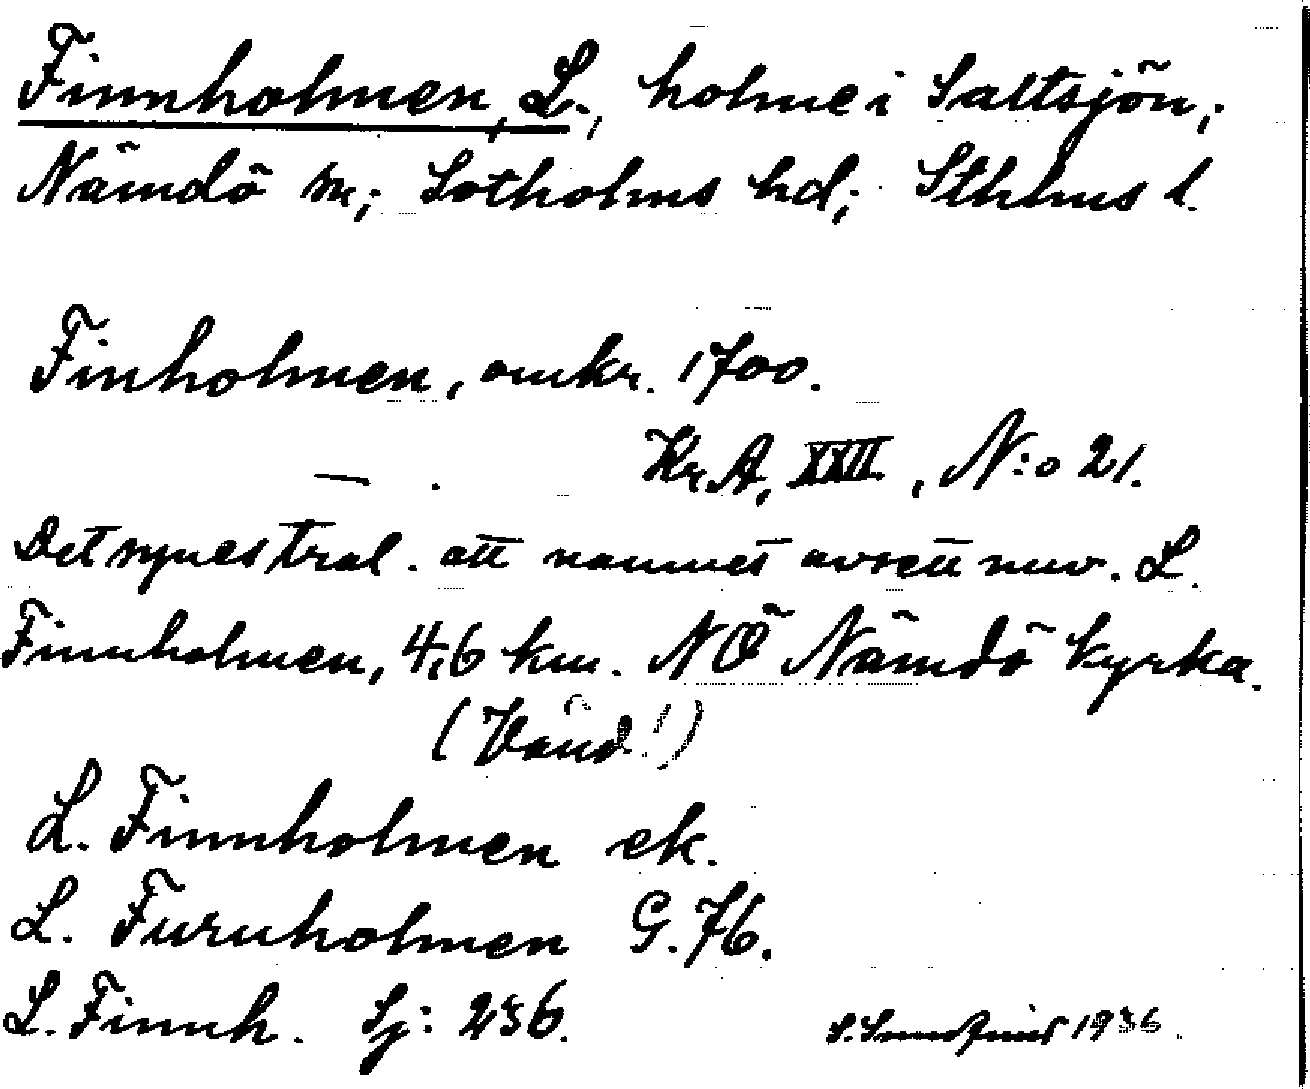 Finnholmen, L., holme i Saltsjön,
Nämdö sn; Sotholms hd; Sthlms l.
Finholmen, omkr. 1700.
— . Kr.A, XXII, N:o 21.
Det synes tral. att namnet avsett nuv. L.
Finnholmen, 4,6 km. NÖ Nämdö kyrka.
(Vänd!)
L. Finnholmen ek.
L. Furuholmen G.76.
L. Finnh. Sj: 236.
1936.